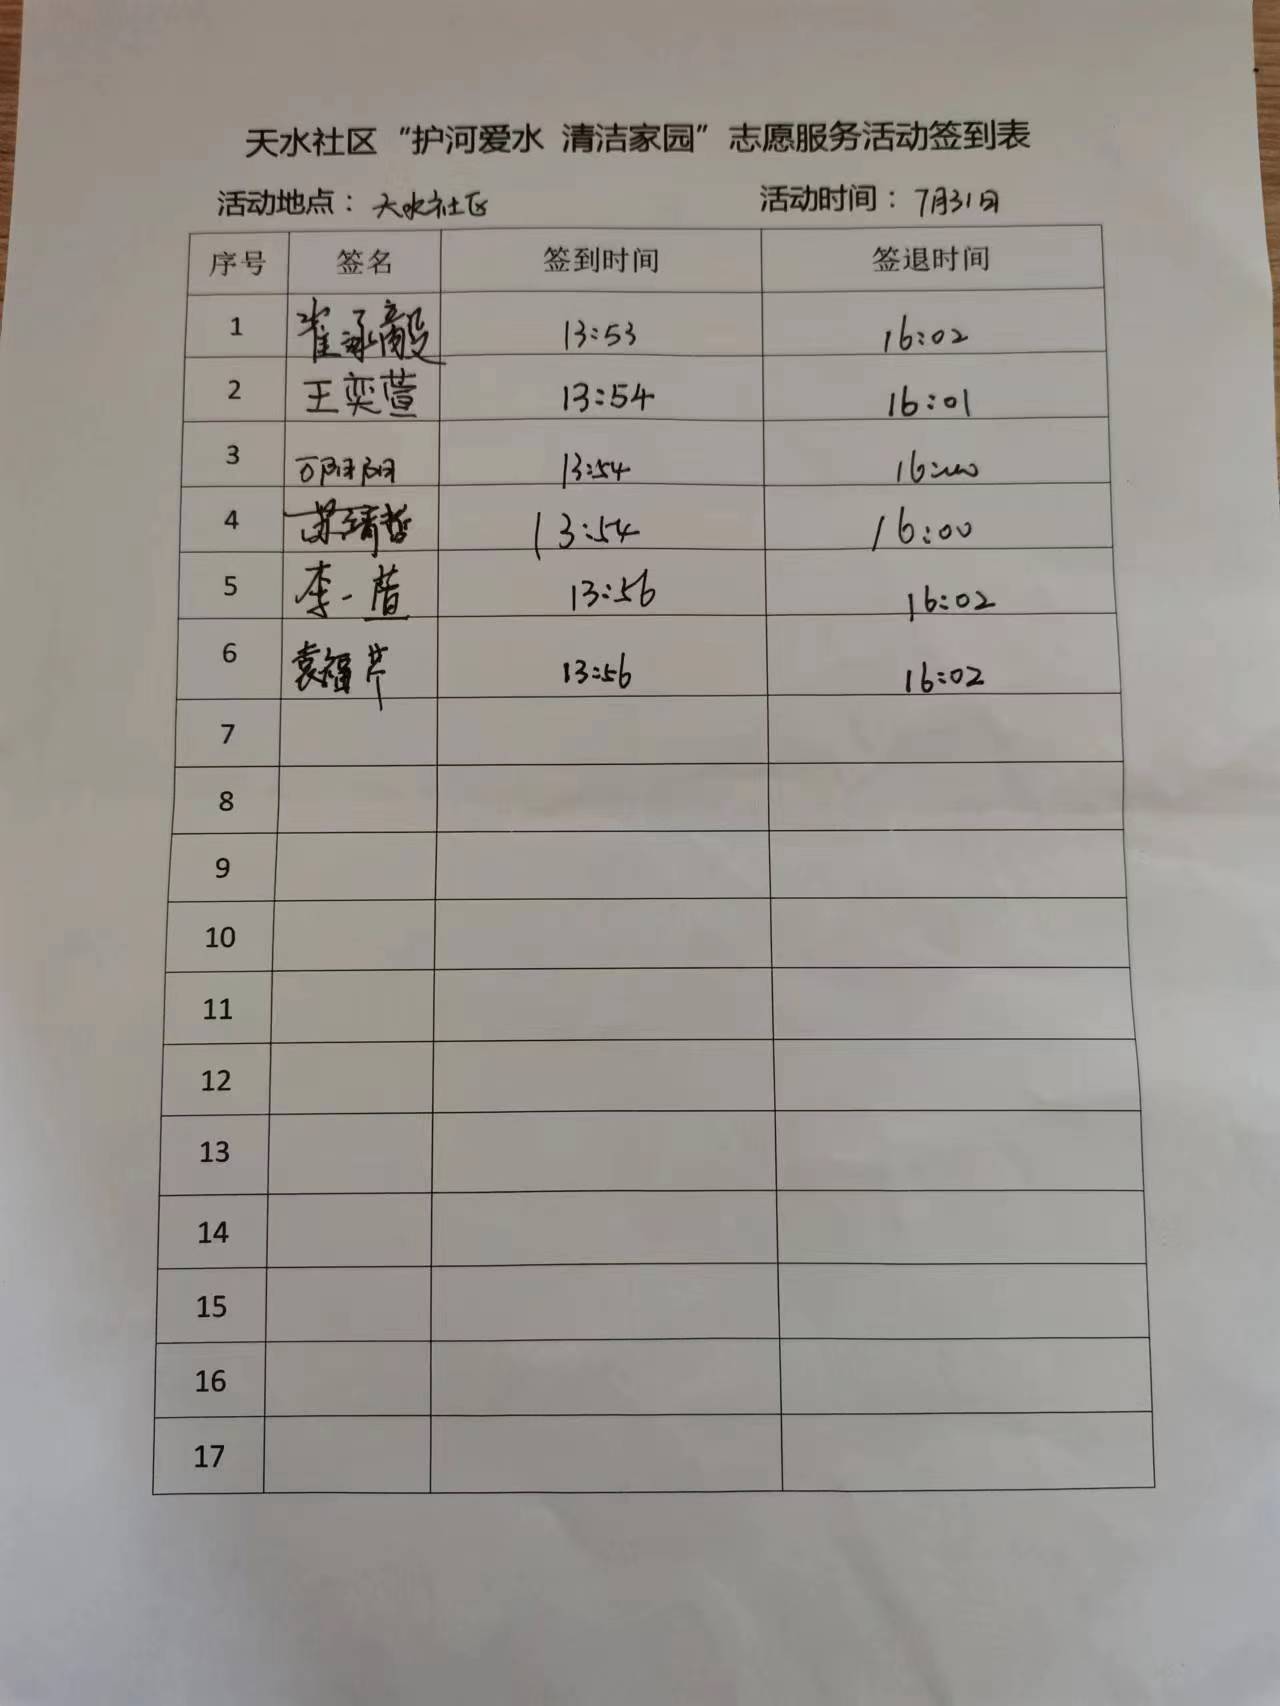 天水社区“护河爱水 清洁家园”志愿服务活动签到表
活动地点：天水社区 活动时间：7月31日
序号 签名 签到时间 签退时间
1 崔泳毅 13:53 16:02
2 王奕萱 13:54 16:01
3 万阳阳 13:54 16:00
4 苏靖哲 13:54 16:00
5 李一萱 13:56 16:02
6 袁福芹 13:56 16:02
7
8
9
10
11
12
13
14
15
16
17